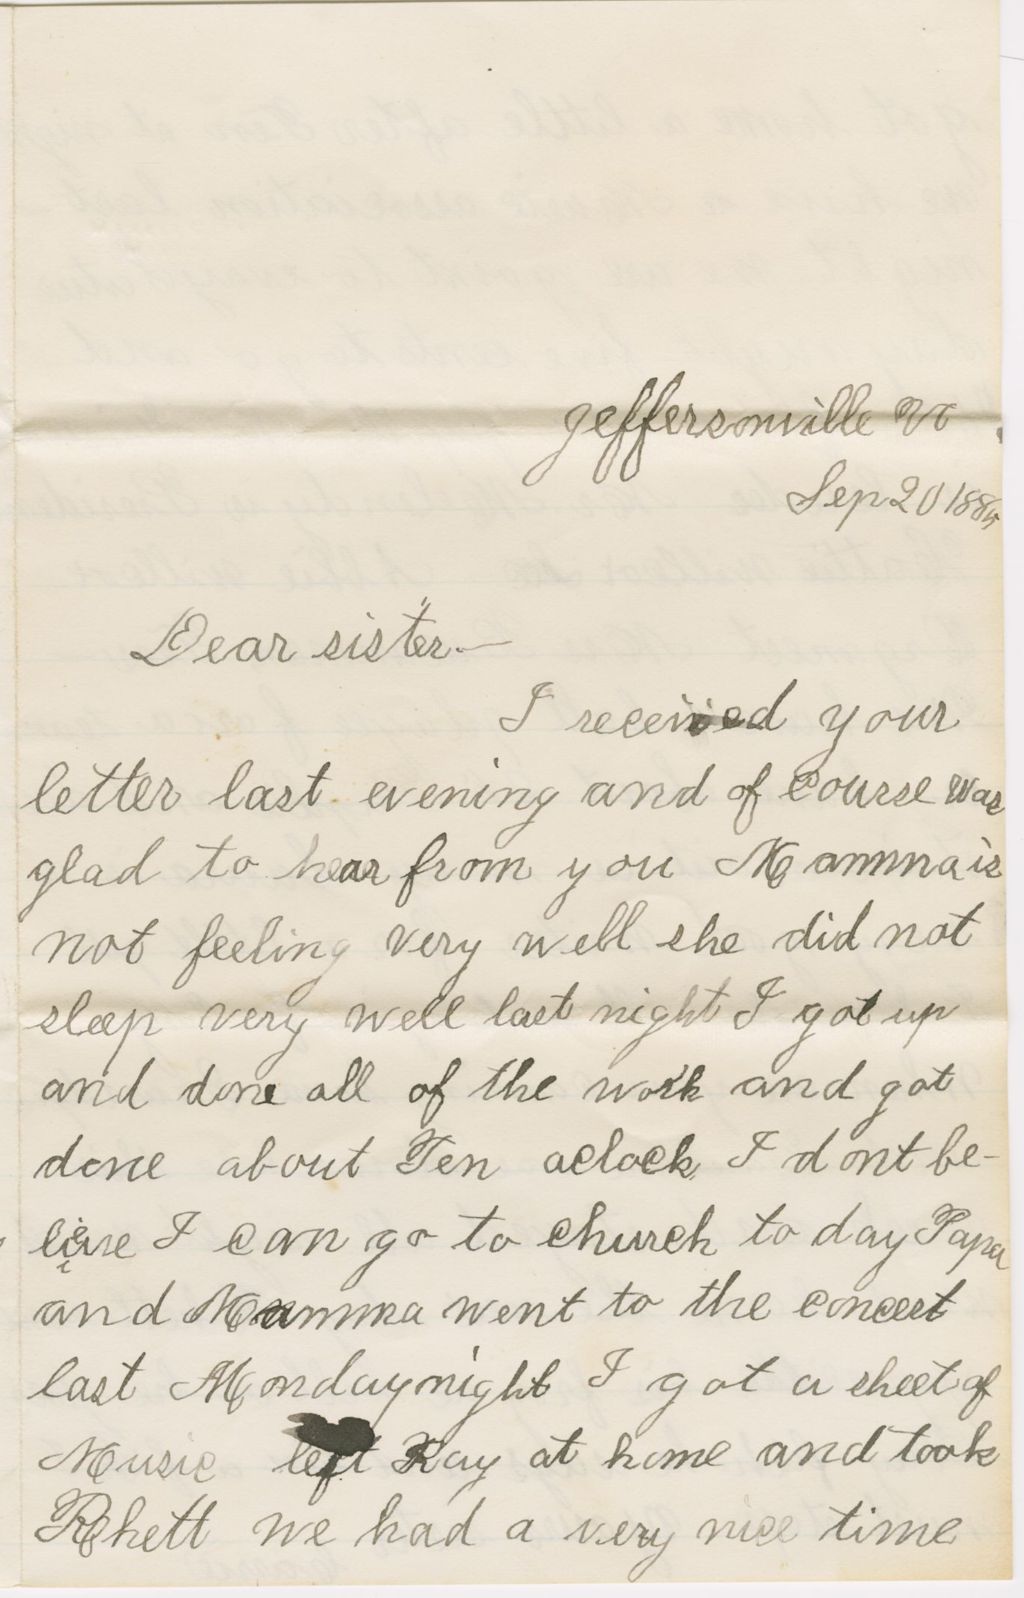 Jeffersonville Vt
Sep 20 1885
Dear sister.—
I received your
letter last evening and of course was
glad to hear from you Mamma is
not feeling very well she did not
sleep very well last night I got up
and done all of the work and got
done about Ten oclock, I dont be-
lieve I can go to church to day Papa
and Mamma went to the concert
last Monday night I got a sheet of
Music left Kay at home and took
Rhett we had a very nice time